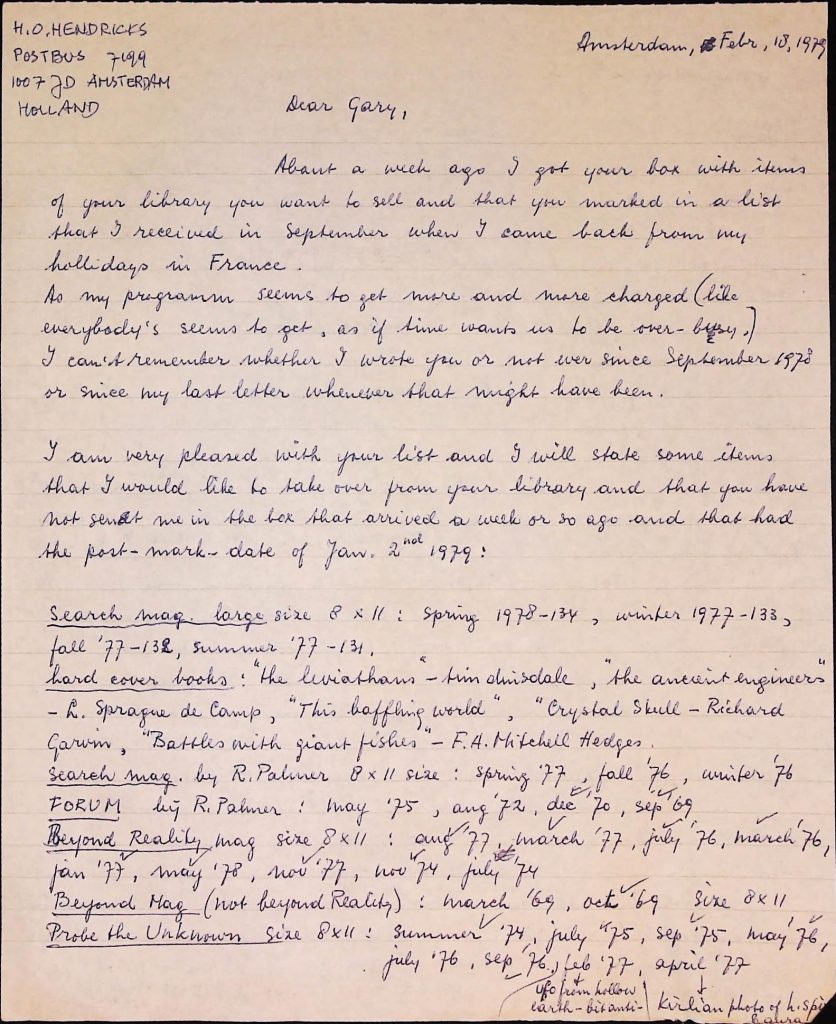 H.O. HENDRICKS
POSTBUS 7199
1007 JD AMSTERDAM
HOLLAND
Amsterdam, Febr, 18, 1979
Dear Gary,
About a week ago I got your box with items
of your library you want to sell and that you marked in a list
that I received in September when I came back from my
hollidays in France.
As my programm seems to get more and more charged (like
everybody's seems to get, as if time wants us to be over-busy.)
I can't remember whether I wrote you or not ever since September 1978
or since my last letter whenever that might have been.
I am very pleased with your list and I will state some items
that I would like to take over from your library and that you have
not sent me in the box that arrived a week or so ago and that had
the post-mark-date of Jan. 2nd 1979:
Search mag. large size 8 x 11 : spring 1978-134, winter 1977-133,
fall '77-132, summer '77-131.
hard cover books : "the leviathans" - tim dinsdale, "the ancient engineers"
- L. Sprague de Camp, "This baffling world", "Crystal Skull - Richard
Garvin, "Battles with giant fishes" - F.A. Mitchell Hedges.
Search mag. by R. Palmer 8 x 11 size : spring '77, fall '76, winter '76
FORUM by R. Palmer : may '75, aug '72, dec '70, sep '69
Beyond Reality mag size 8 x 11 : aug '77, march '77, july '76, march '76,
jan '77, may '78, nov '77, nov '74, july '74
Beyond Mag (not beyond Reality) : march '69, oct '69 size 8 x 11
Probe the Unknown size 8 x 11 : summer '74, july '75, sep '75, may '76,
july '76, sep '76, feb '77, april '77
ufo from hollow
earth-bitanti- Kirlian photo of h. spi
aura